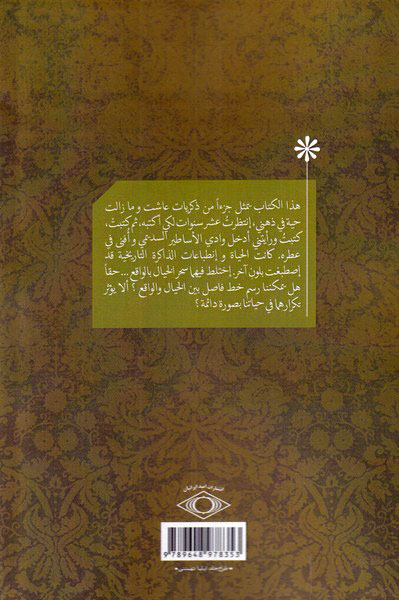 هذا الكتاب يمثل جزءاً من ذكريات عاشت و ما زالت
حية في ذهني، إنتظرتُ عشر سنوات لكي أكتبه، ثم كتبتُ،
كتبتُ ورأيتني أدخل وادي الأساطير السديمي و أفنى في
عطره. كانت الحياة و إنطباعات الذاكرة التاريخية قد
إصطبغت بلون آخر. إختلط فيهما سحر الخيال بالواقع ... حقاً
هل يمكننا رسم خط فاصل بين الخيال والواقع ؟ ألا يؤثر
تكرارهما في حياتنا بصورة دائمة ؟
9 789648 978353